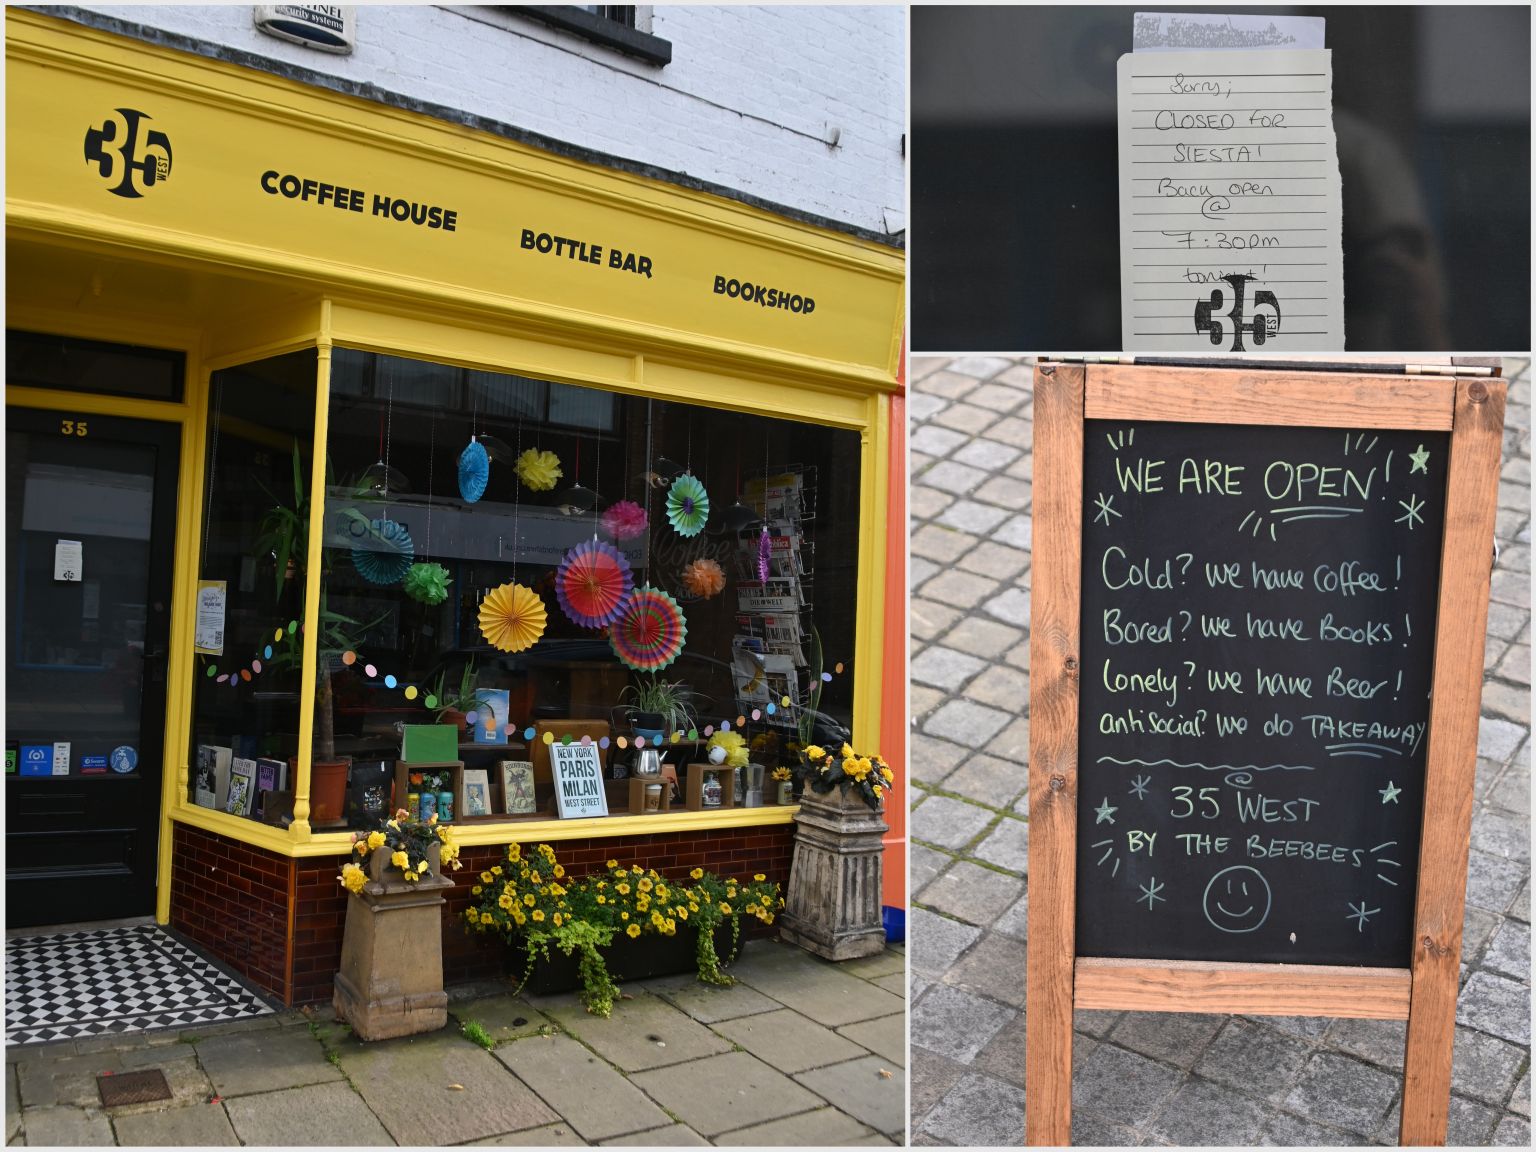 SENTINEL
security systems
35
WEST
COFFEE HOUSE
BOTTLE BAR
BOOKSHOP
35
DIE WELT
NEW YORK
PARIS
MILAN
WEST STREET
Sorry;
CLOSED FOR
SIESTA!
Back open
@
7:30pm
tonight!
35
WEST
WE ARE OPEN!
Cold? we have Coffee!
Bored? we have Books!
lonely? we have Beer!
antisocial? We do TAKEAWAY
@
35 WEST
BY THE BEEBEES